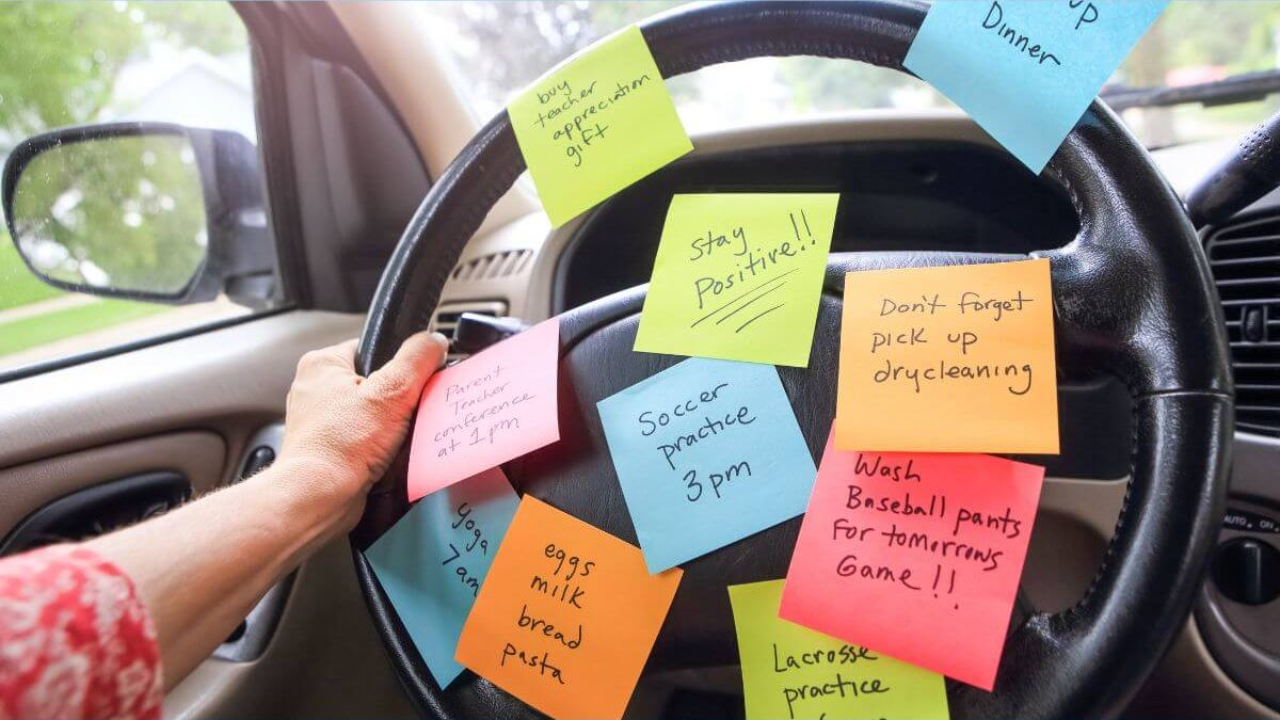 up
Dinner
buy
teacher
appreciation
gift
Stay
Positive!!
Don't forget
pick up
drycleaning
Parent
Teacher
conference
at 1pm
Soccer
practice
3pm
Wash
Baseball pants
For tomorrows
Game!!
yoga
7am
eggs
milk
bread
pasta
Lacrosse
practice
AUTO. ON